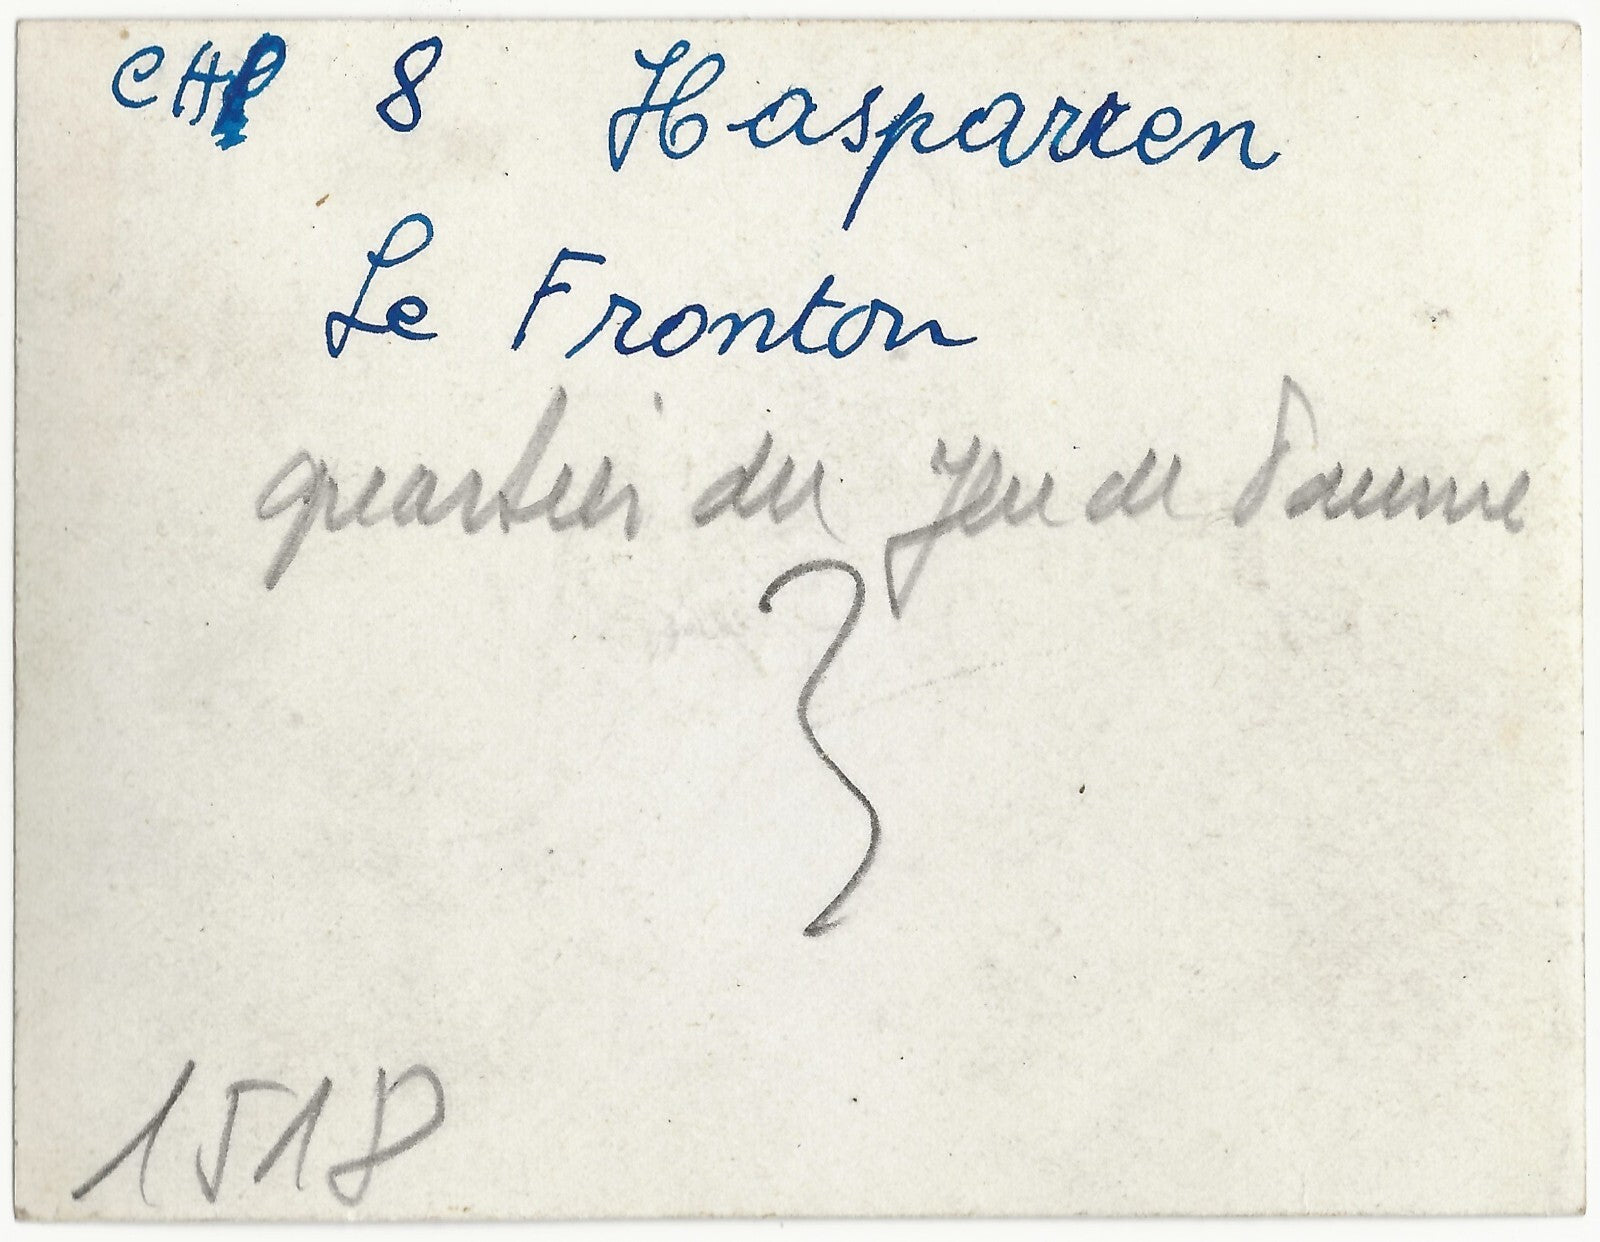 CHP 8 Hasparren
Le Fronton
quartier du Jeu de Paume
1518